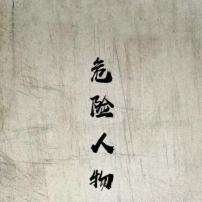 危险人物